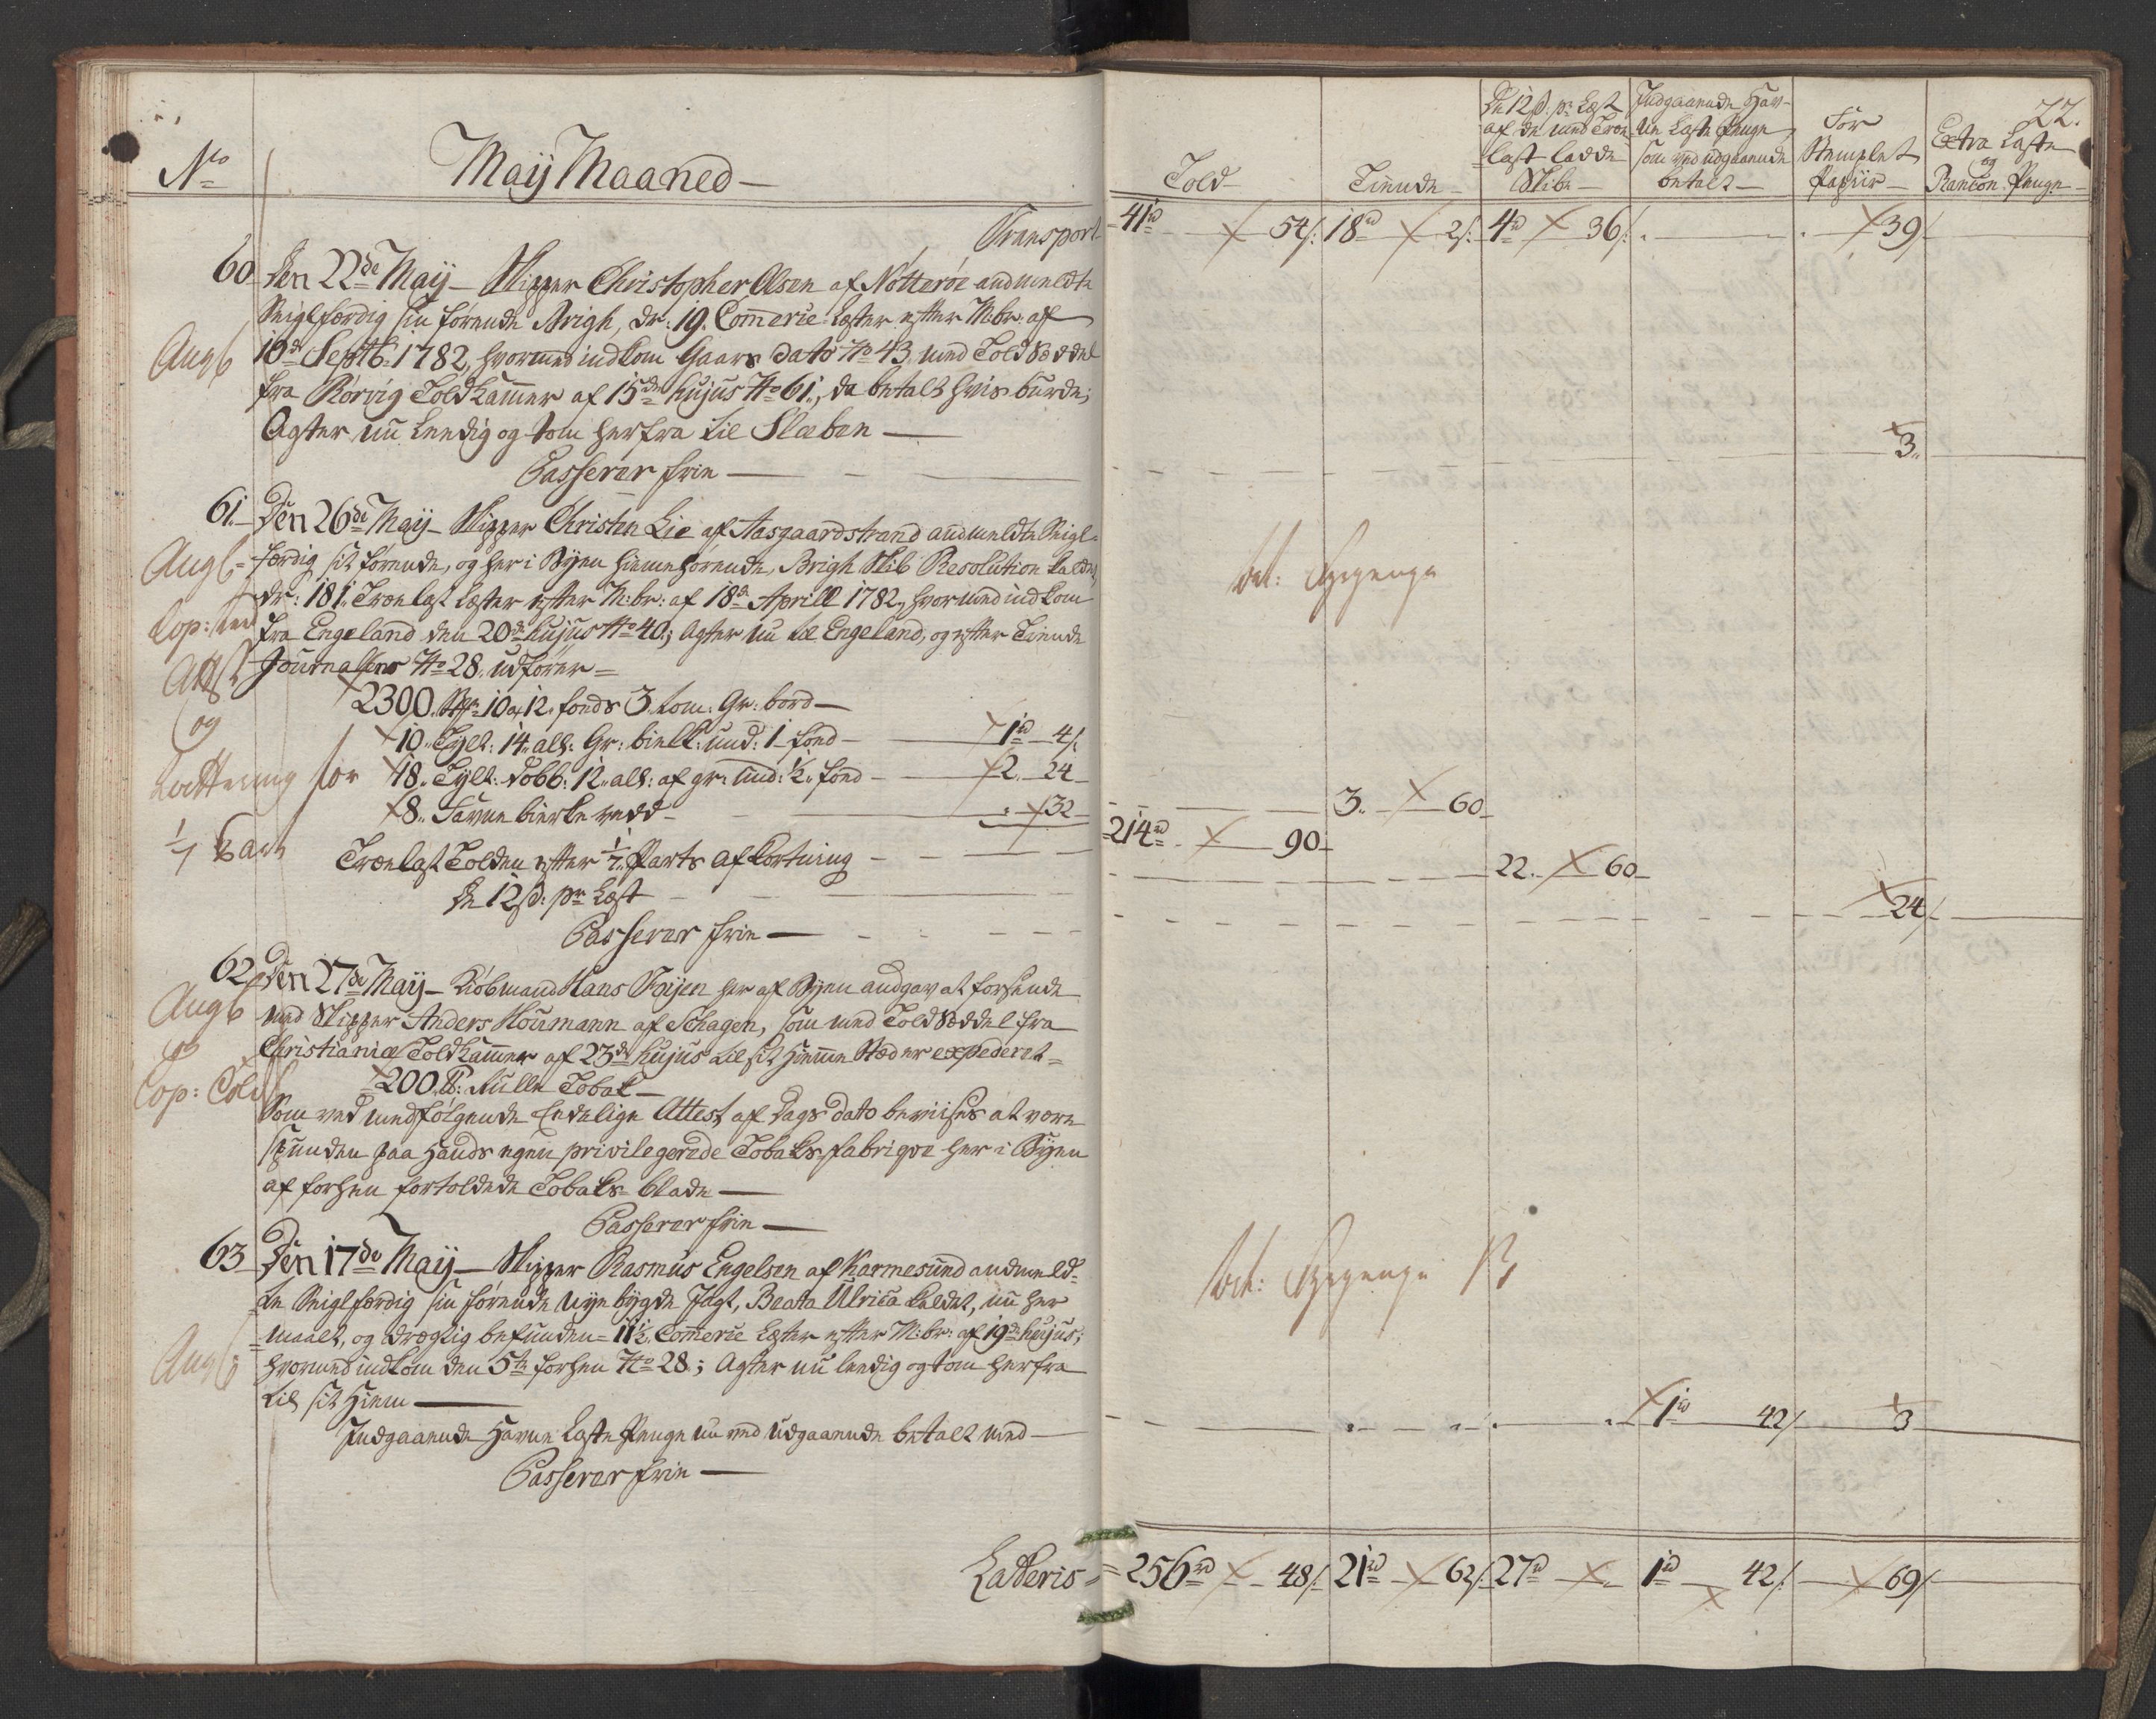 No
Maij Maaned
Transport
60 Den 22de Maij Skipper Christopher Olsen af Nötteröe andmeldte
Seiglfærdig sin förende Brigh, dr: 19 Commerce Læster efter M:br: af
Angb
10de Septb: 1782, hvormed indkom Gaars dato No 43 med Told Sæddel
fra Rörvig Toldkammer af 15de hujus No 61, da betalt hvis burde;
Agter nu Leedig og tom herfra til Slæben
Passerer frie
61 Den 26de Maij Skipper Christen Lie af Aasgaardstrand andmeldte Seigl-
Angb
færdig sit förende, og her i Byen hiemmehörende, Brigh Skib Resolution kaldet,
dr: 181 Trælast Læster efter M:br: af 18de Aprill 1782, hvormed indkom
Cop:
fra Engeland den 20de hujus No 40; Agter nu til Engeland, og efter Tiende
Journalens No 28 udförer =
Attst
2300 10 a 12 fods 3 tom: Gr: bord
og
10 Tylt: 14 all: Gr: bielk: und: 1 fod 1rd 4s
for 18 Tylt: dobb: 12 all: af gr: und: 1/2 fod 2 24
8 Favne birke vedd 32
1/7 Part
Trælast Tolden efter 1/7 Parts afkortning
De 12 s: pr Læst
Passerer frie
62 Den 27de Maij Kiöbmand Hans Föijen her af Byen andgav at forsende
Angb
med Skipper Anders Houmann af Schagen, som med Told Sæddel fra
og
Christianiæ Toldkammer af 23de hujus til sit Hiemme Stæd er expederet =
Cop:
200 lb: Rulle Tobak
Som ved medfölgende Eedelige Attest af Dags dato beviises at være
spunden paa Hands egen privilegerede Tobaks-fabriqve her i Byen
af forhen fortoldede Tobaks-blade
Passerer frie
63 Den 17de Maij Skipper Rasmus Engelsen af Karmesund andmeld-
te Seiglfærdig sin förende nye bygde Jagt, Beata Ulrica kaldet, nu her
maalt, og drægtig befunden = 11 1/2 Commerce Læster efter M:br: af 19de hujus;
Angb
hvormed indkom den 5te forhen No 28; Agter nu leedig og tom herfra
til sit Hiem
Indgaaende Havne Laste Penge nu ved Udgaaende betalt med
Passerer frie
Lateris
22.
Told
Tiende
De 12 s: pr Læst af de med Træ-last ladde Skibe
Indgaaende Hav-ne Laste Penge som ved udgaaende betalt
For Stemplet Papiir
Extra Laste og Rancon Penge
41rd 54s 18rd 2s 4rd 36s 39
3
bet:
3 60
214rd 90
22 60
24s
bet:
1rd 42s 3
256rd 48s 21rd 62s 27rd 1rd 42s 69s